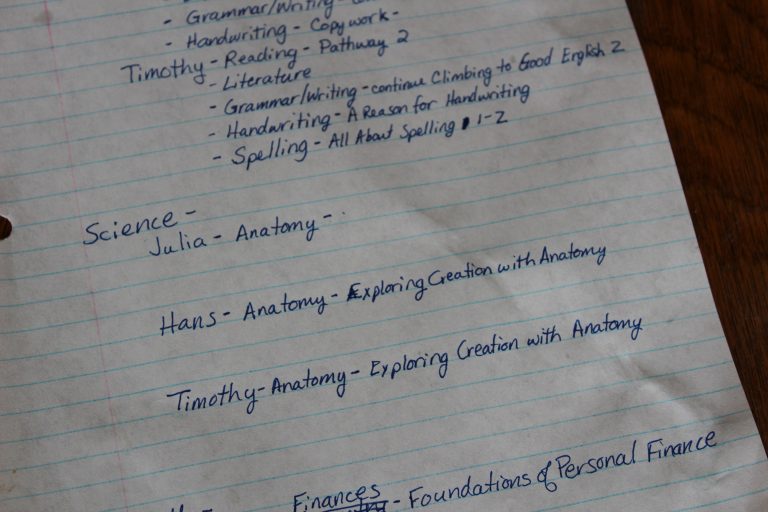 - Grammar/Writing -
- Handwriting - Copywork -
Timothy - Reading - Pathway 2
- Literature
- Grammar/Writing - continue Climbing to Good English 2
- Handwriting - A Reason for Handwriting
- Spelling - All About Spelling 1-2
Science -
Julia - Anatomy -
Hans - Anatomy - Exploring Creation with Anatomy
Timothy - Anatomy - Exploring Creation with Anatomy
Finances
- Foundations of Personal Finance